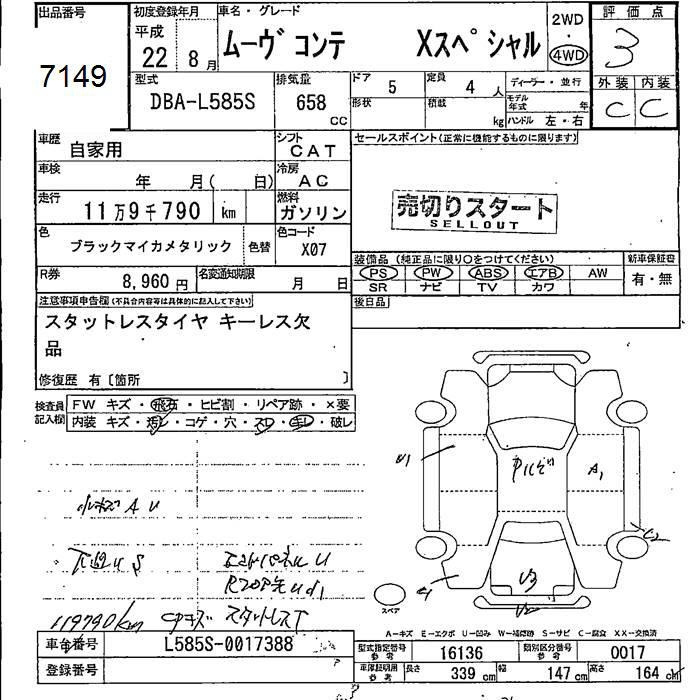 出品番号 初度登録年月 車名・グレード 2WD 評価点
平成
7149 22年 8月 ムーヴ コンテ Xスペシャル ・ 4WD 3
型式 排気量 ドア 5 定員 4人 ディーラー・並行 外装 内装
DBA-L585S 658 cc 形状 積載 kg モデル年式 年 C C
ハンドル 左・右
車歴 自家用 シフト CAT セールスポイント(正常に機能するものに限ります)
車検 年 月( 日) 冷房 AC
走行 11万9千790 km 燃料 ガソリン 売切りスタート
SELLOUT
色 ブラックマイカメタリック 色替 色コード X07
装備品(純正品に限り○をつけてください) 新車保証書
R券 8,960円 名変通知期限 月 日 PS PW ABS エアB AW 有・無
SR ナビ TV カワ
注意事項申告欄(不具合内容等は具体的に記入して下さい) 後日品
スタットレスタイヤ キーレス欠
品
修復歴 有〔箇所 〕
検査員記入欄 FW キズ・飛石・ヒビ割・リペア跡・×要
内装 キズ・汚レ・コゲ・穴・スレ・キレ・破レ
U1 A1
小キズ A U
C2
下廻り S
C1 U3
スペア U2
119790km スタットレスT
A-キズ E-エクボ U-凹み W-補修跡 S-サビ C-腐食 XX-交換済
車台番号 L585S-0017388 型式指定番号 参考 16136 類別区分番号 参考 0017
登録番号 車庫証明用 参考 長さ 339cm 幅 147cm 高さ 164cm